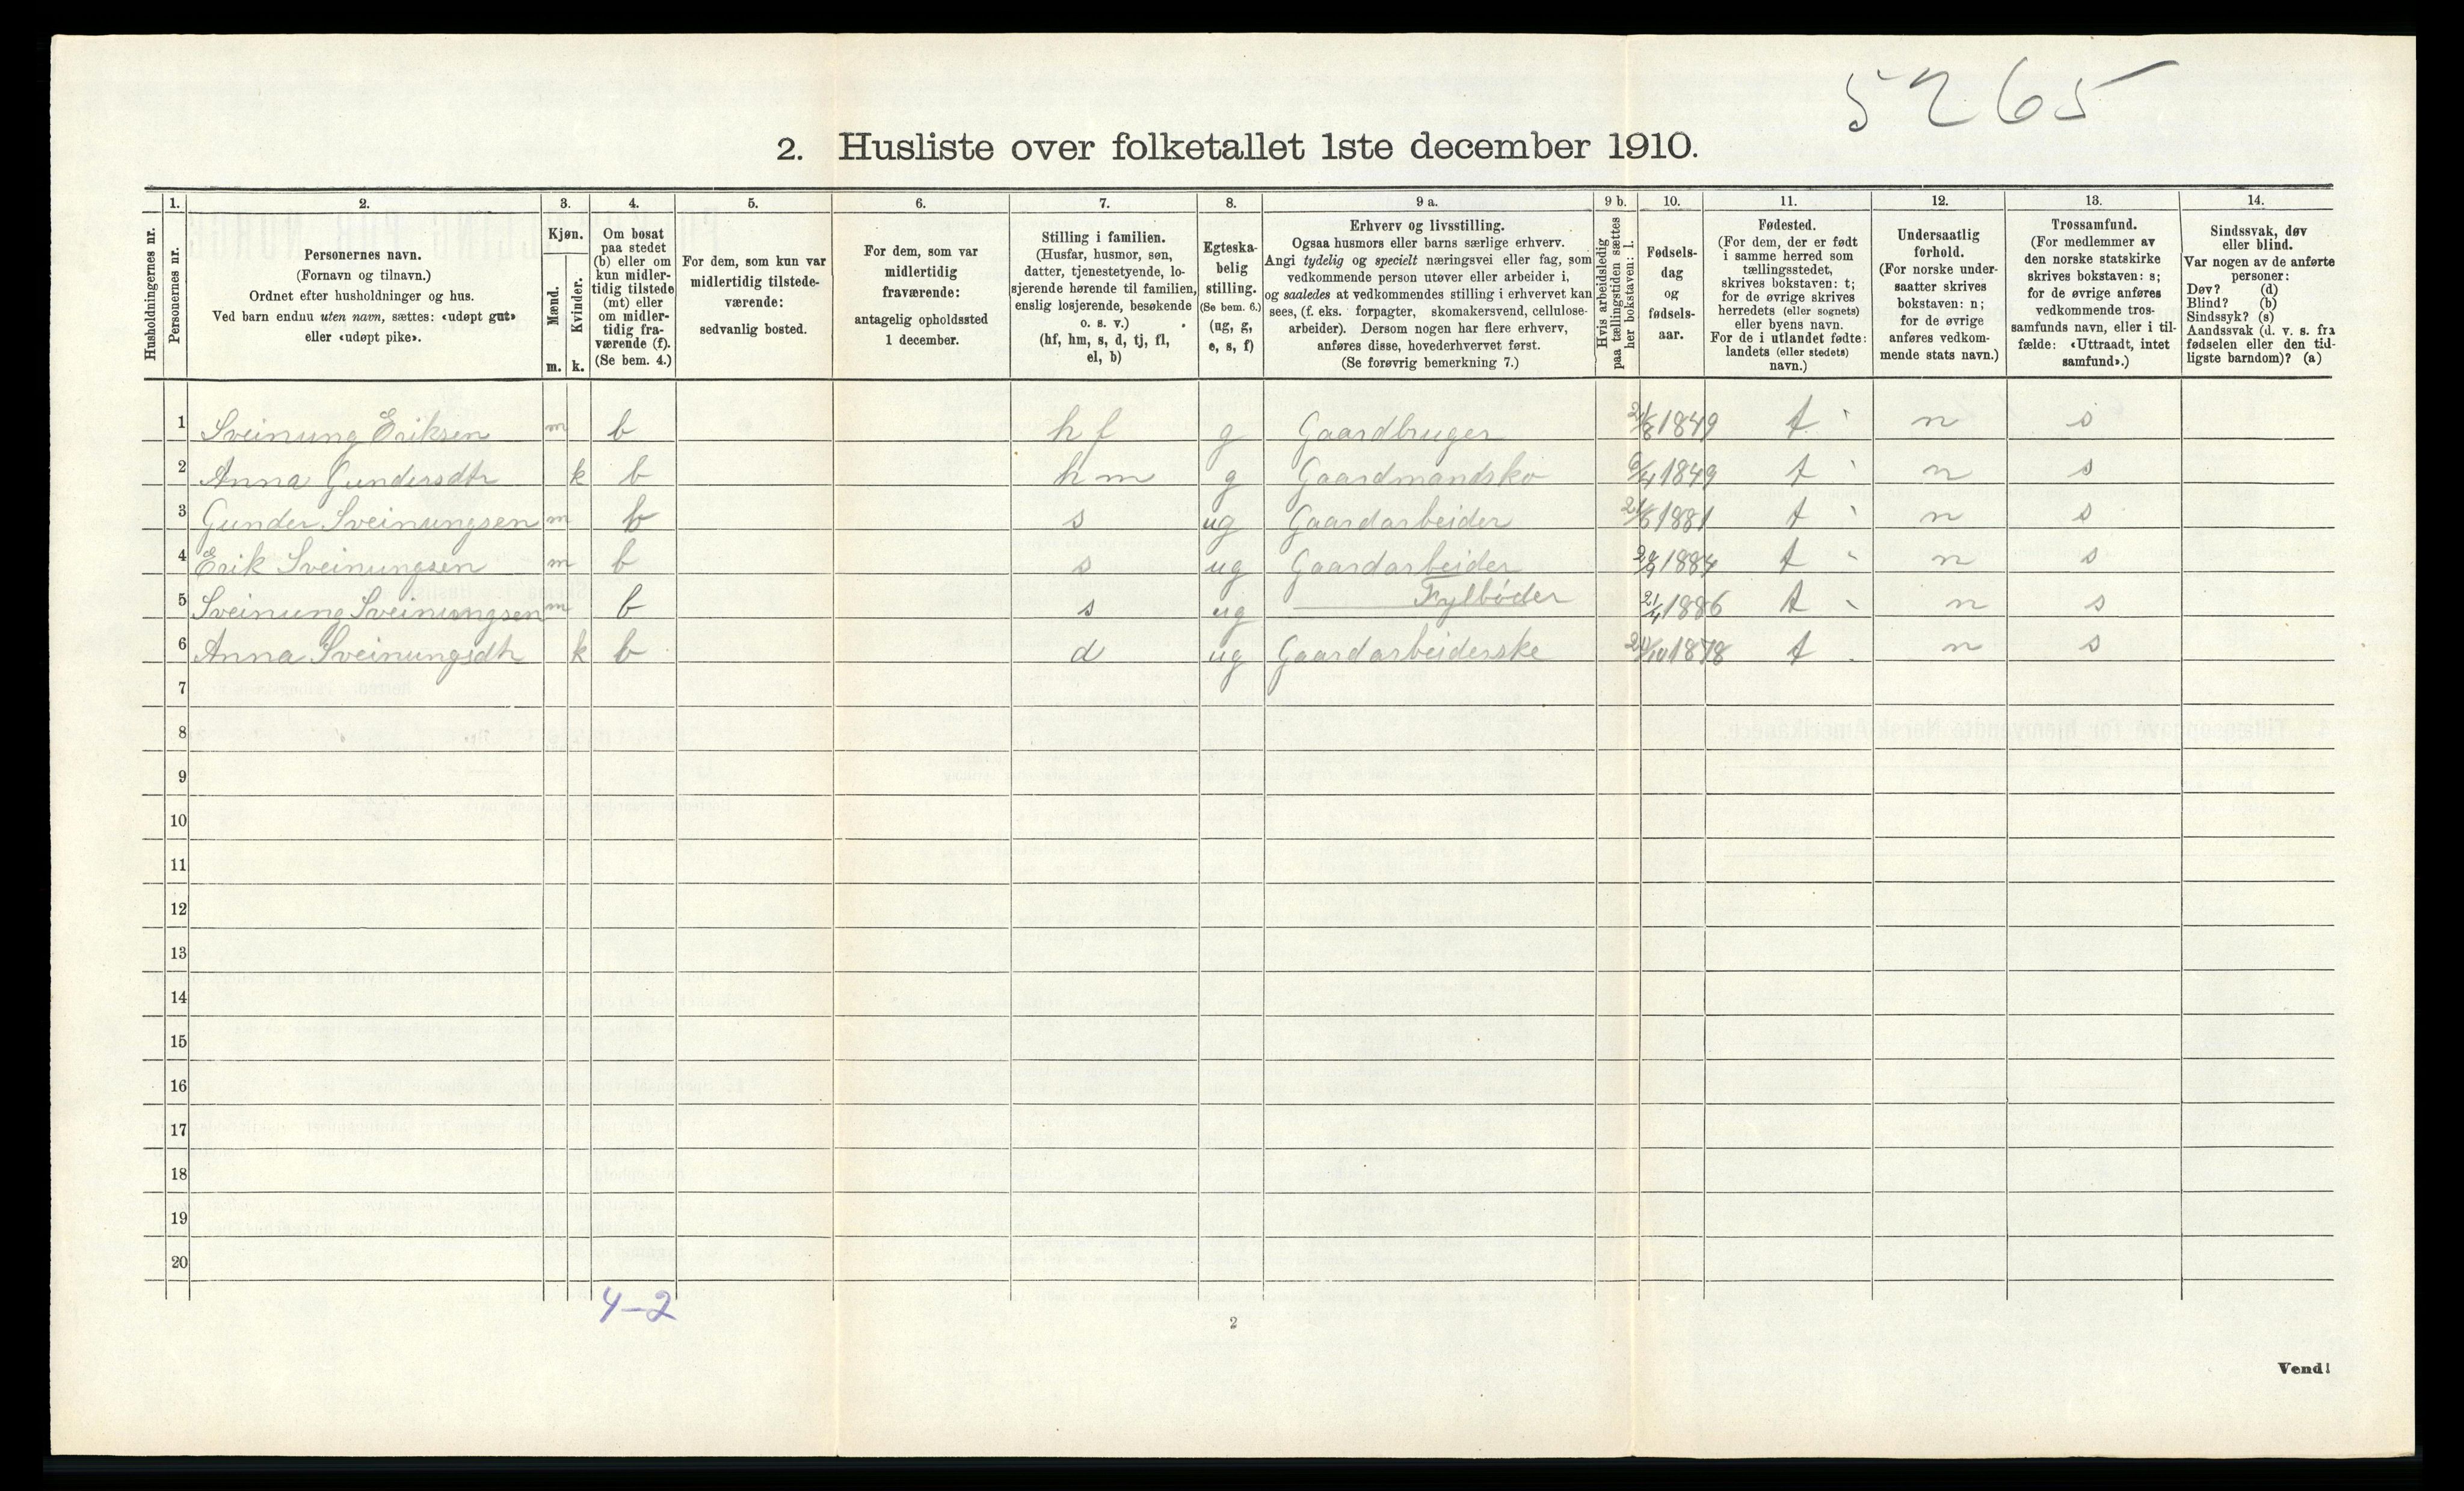 5265
2. Husliste over folketallet 1ste december 1910.
Husholdningernes nr.
1. Personernes nr.
2. Personernes navn. (Fornavn og tilnavn.) Ordnet efter husholdninger og hus. Ved barn endnu uten navn, sættes: «udøpt gut» eller «udøpt pike».
3. Kjøn. Mænd. Kvinder. m. k.
4. Om bosat paa stedet (b) eller om kun midlertidig tilstede (mt) eller om midlertidig fraværende (f). (Se bem. 4.)
5. For dem, som kun var midlertidig tilstedeværende: sedvanlig bosted.
6. For dem, som var midlertidig fraværende: antagelig opholdssted 1 december.
7. Stilling i familien. (Husfar, husmor, søn, datter, tjenestetyende, losjerende hørende til familien, enslig losjerende, besøkende o. s. v.) (hf, hm, s, d, tj, fl, el, b)
8. Egteskabelig stilling. (Se bem. 6.) (ug, g, e, s, f)
9 a. Erhverv og livsstilling. Ogsaa husmors eller barns særlige erhverv. Angi tydelig og specielt næringsvei eller fag, som vedkommende person utøver eller arbeider i, og saaledes at vedkommendes stilling i erhvervet kan sees, (f. eks. forpagter, skomakersvend, cellulosearbeider). Dersom nogen har flere erhverv, anføres disse, hovederhvervet først. (Se forøvrig bemerkning 7.)
9 b. Hvis arbeidsledig paa tællingstiden sættes her bokstaven: l.
10. Fødselsdag og fødselsaar.
11. Fødested. (For dem, der er født i samme herred som tællingsstedet, skrives bokstaven: t; for de øvrige skrives herredets (eller sognets) eller byens navn. For de i utlandet fødte: landets (eller stedets) navn.)
12. Undersaatlig forhold. (For norske undersaatter skrives bokstaven: n; for de øvrige anføres vedkommende stats navn.)
13. Trossamfund. (For medlemmer av den norske statskirke skrives bokstaven: s; for de øvrige anføres vedkommende trossamfunds navn, eller i tilfælde: «Uttraadt, intet samfund».)
14. Sindssvak, døv eller blind. Var nogen av de anførte personer: Døv? (d) Blind? (b) Sindssyk? (s) Aandssvak (d. v. s. fra fødselen eller den tidligste barndom)? (a)
1 Sveinung Eriksen m b hf g Gaardbruger 1849 t n s
2 Anna Gundersdtr k b hm g Gaardmandsko 6/4 1849 t n s
3 Gunder Sveinungsen m b s ug Gaardarbeider 1881 t n s
4 Erik Sveinungsen m b s ug Gaardarbeider 1884 t n s
5 Sveinung Sveinungsen m b s ug Fylbøder 21/4 1886 t n s
6 Anna Sveinungsdtr k b d ug Gaardarbeiderske 1878 t n s
7
8
9
10
11
12
13
14
15
16
17
18
19
20
4-2
2
Vend!